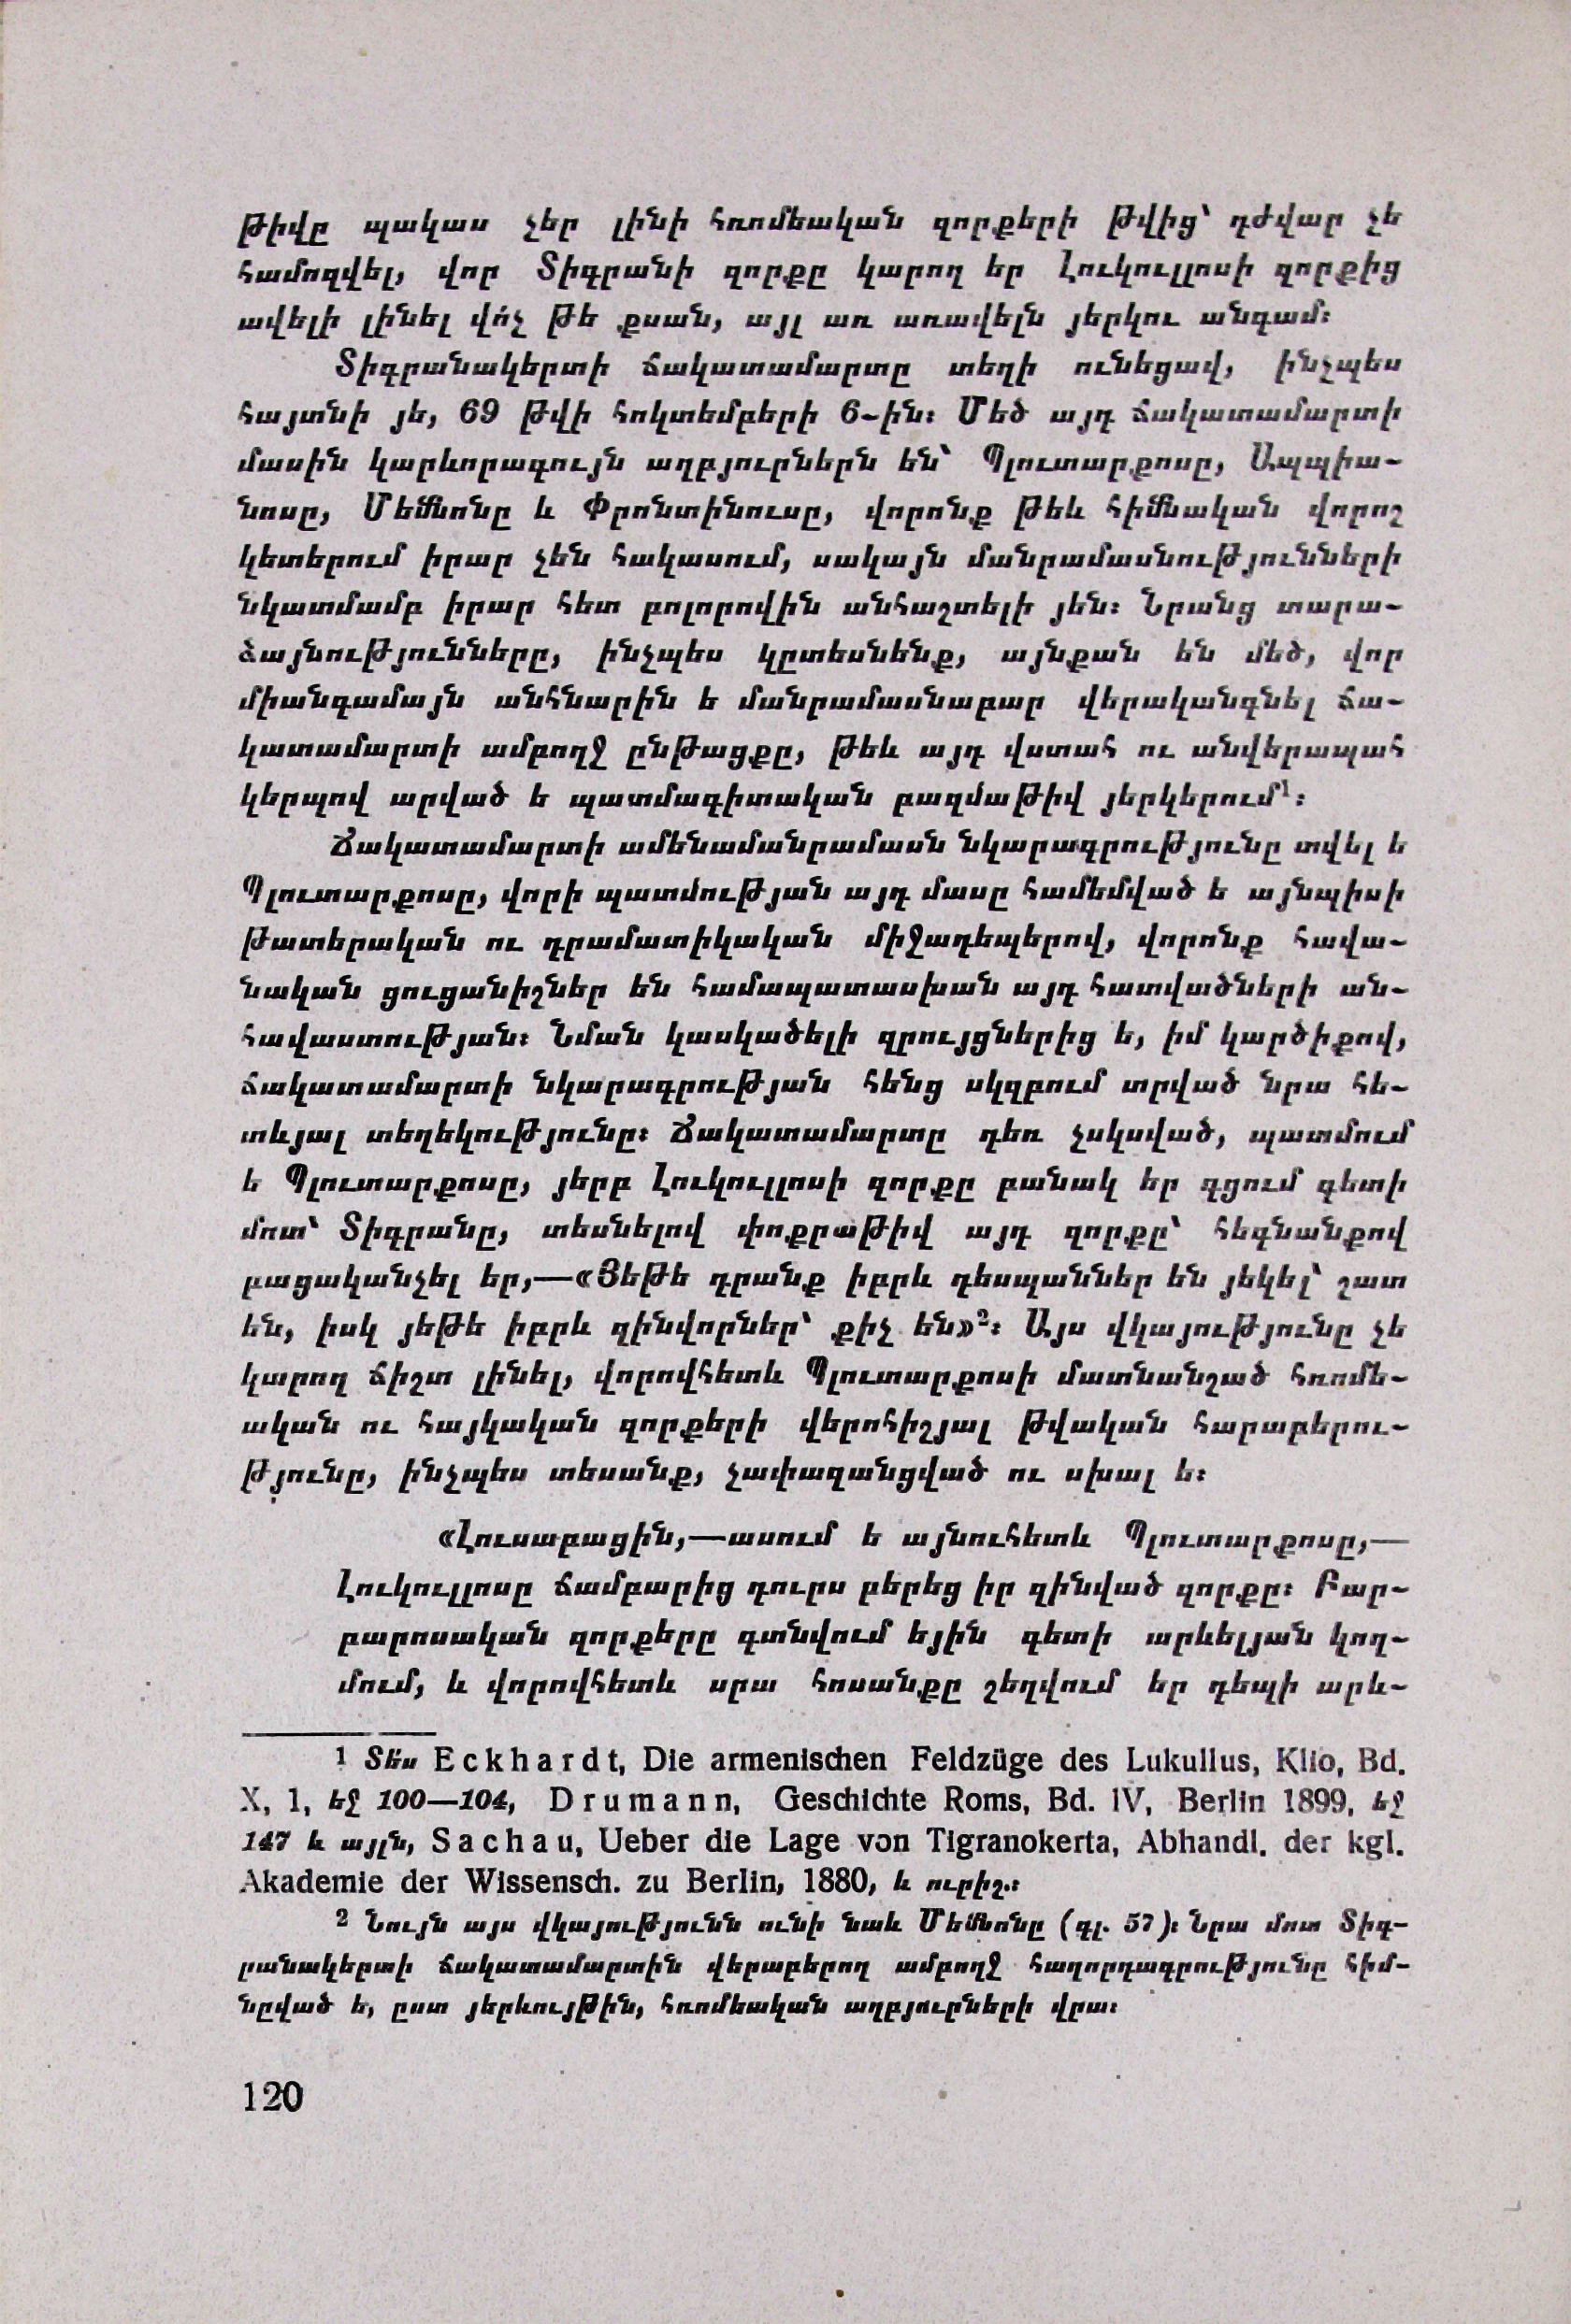 թիվը պակաս չեր լինի հռոմեական զորքերի թվից՝ դժվար չե
համոզվել, վոր Տիգրանի զորքը կարող եր Լուկուլլոսի զորքից
ավելի լինել վո՛չ թե քսան, այլ առ առավելն յերկու անգամ։
Տիգրանակերտի ճակատամարտը տեղի ունեցավ, ինչպես
հայտնի յե, 69 թվի հոկտեմբերի 6-ին։ Մեծ այդ ճակատամարտի
մասին կարևորագույն աղբյուրներն են՝ Պլուտարքոսը, Ապպիա-
նոսը, Մեմնոնը և Փրոնտինուսը, վորոնք թեև հիմնական վորոշ
կետերում իրար չեն հակասում, սակայն մանրամասնությունների
նկատմամբ իրար հետ բոլորովին անհաշտելի յեն։ Նրանց տարա-
ձայնությունները, ինչպես կըտեսնենք, այնքան են մեծ, վոր
միանգամայն անհնարին ե մանրամասնաբար վերականգնել ճա-
կատամարտի ամբողջ ընթացքը, թեև այդ վստահ ու անվերապահ
կերպով արված ե պատմագիտական բազմաթիվ յերկերում¹։
Ճակատամարտի ամենամանրամասն նկարագրությունը տվել ե
Պլուտարքոսը, վորի պատմության այդ մասը համեմված ե այնպիսի
թատերական ու դրամատիկական միջադեպերով, վորոնք հավա-
նական ցուցանիշներ են համապատասխան այդ հատվածների ան-
հավաստության։ Նման կասկածելի զրույցներից ե, իմ կարծիքով,
ճակատամարտի նկարագրության հենց սկզբում տրված նրա հե-
տևյալ տեղեկությունը։ Ճակատամարտը դեռ չսկսված, պատմում
ե Պլուտարքոսը, յերբ Լուկուլլոսի զորքը բանակ եր գցում գետի
մոտ՝ Տիգրանը, տեսնելով փոքրաթիվ այդ զորքը՝ հեգնանքով
բացականչել եր,—«Յեթե դրանք իբրև դեսպաններ են յեկել՝ շատ
են, իսկ յեթե իբրև զինվորներ՝ քիչ են»²։ Այս վկայությունը չե
կարող ճիշտ լինել, վորովհետև Պլուտարքոսի մատնանշած հռոմե-
ական ու հայկական զորքերի վերոհիշյալ թվական հարաբերու-
թյունը, ինչպես տեսանք, չափազանցված ու սխալ ե։
«Լուսաբացին,—ասում ե այնուհետև Պլուտարքոսը,—
Լուկուլլոսը ճամբարից դուրս բերեց իր զինված զորքը։ Բար-
բարոսական զորքերը գտնվում եյին գետի արևելյան կող-
մում, և վորովհետև սրա հոսանքը շեղվում եր դեպի արև-
1 Տե՛ս Eckhardt, Die armenischen Feldzüge des Lukullus, Klio, Bd.
X, 1, եջ 100—104, Drumann, Geschichte Roms, Bd. IV, Berlin 1899, եջ
147 և այլն, Sachau, Ueber die Lage von Tigranokerta, Abhandl. der kgl.
Akademie der Wissensch. zu Berlin, 1880, և ուրիշ.։
2 Նույն այս վկայությունն ունի նաև Մեմնոնը (գլ. 57)։ Նրա մոտ Տիգ-
րանակերտի ճակատամարտին վերաբերող ամբողջ հաղորդագրությունը հիմ-
նըված ե, ըստ յերևույթին, հռոմեական աղբյուրների վրա։
120